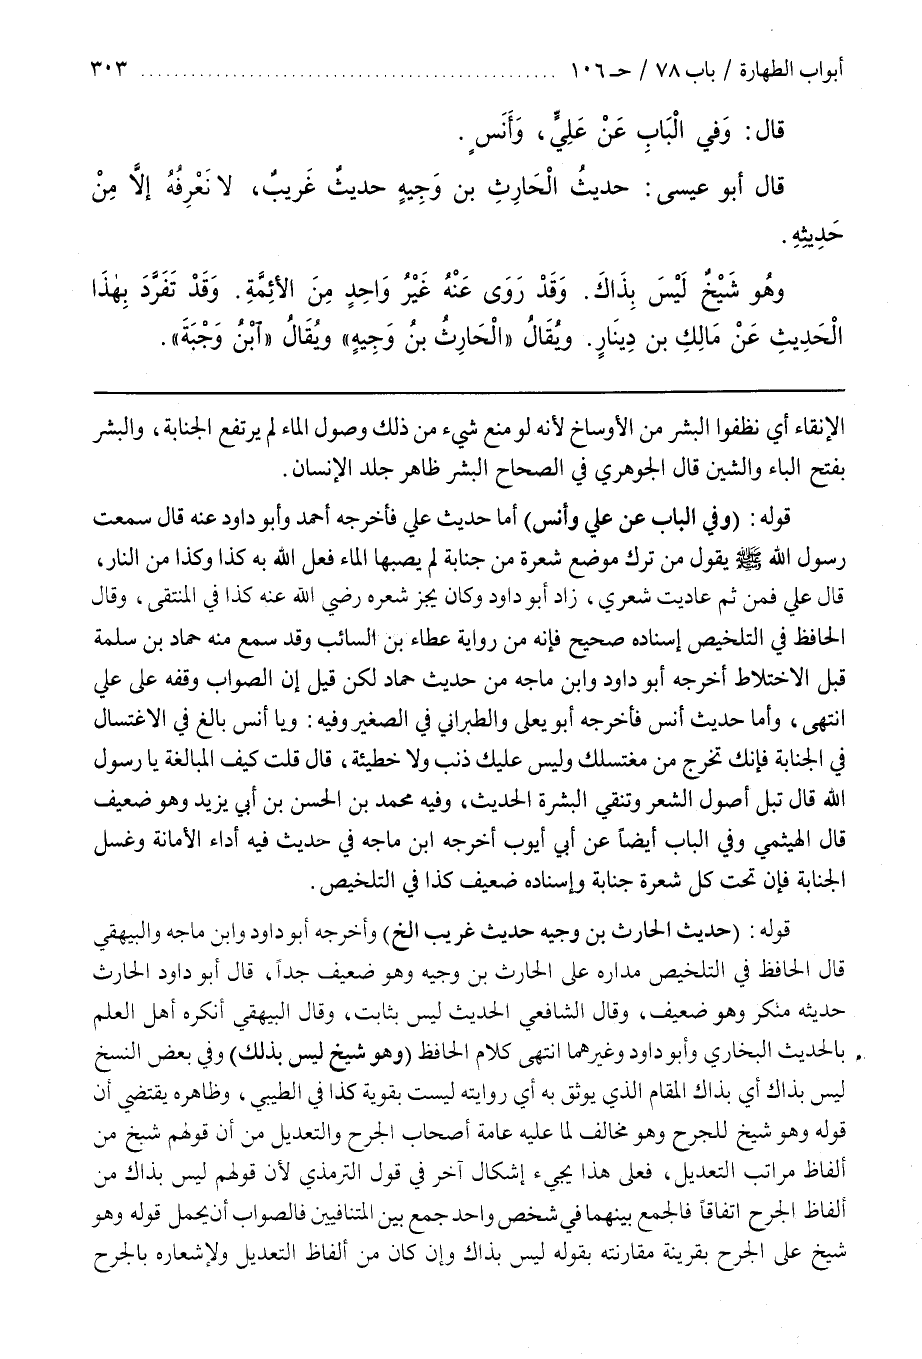 أبواب الطهارة / باب ٧٨ / حـ ١٠٦ ................................................ ٣٠٣
قال: وَفي الْبَابِ عَنْ عَلِيٍّ، وَأَنَسٍ.
قال أبو عيسى: حديثُ الْحَارِثِ بن وَجِيهٍ حديثٌ غَرِيبٌ، لا نَعْرِفُهُ إلَّا مِنْ
حَدِيثِهِ.
وهُو شَيْخٌ لَيْسَ بِذَاكَ. وَقَدْ رَوَى عَنْهُ غَيْرُ وَاحِدٍ مِنَ الأئِمَّةِ. وَقَدْ تَفَرَّدَ بِهٰذَا
الْحَدِيثِ عَنْ مَالِكِ بن دِينَارٍ. ويُقَالُ «الْحَارِثُ بنُ وَجِيهٍ» ويُقَالُ «ٱبْنُ وَجْبَةَ».
الإنقاء أي نظفوا البشر من الأوساخ لأنه لو منع شيء من ذلك وصول الماء لم يرتفع الجنابة، والبشر
بفتح الباء والشين قال الجوهري في الصحاح البشر ظاهر جلد الإنسان.
قوله: (وفي الباب عن علي وأنس) أما حديث علي فأخرجه أحمد وأبو داود عنه قال سمعت
رسول الله ﷺ يقول من ترك موضع شعرة من جنابة لم يصبها الماء فعل الله به كذا وكذا من النار،
قال علي فمن ثم عاديت شعري، زاد أبو داود وكان يجز شعره رضي الله عنه كذا في المنتقى، وقال
الحافظ في التلخيص إسناده صحيح فإنه من رواية عطاء بن السائب وقد سمع منه حماد بن سلمة
قبل الاختلاط أخرجه أبو داود وابن ماجه من حديث حماد لكن قيل إن الصواب وقفه على علي
انتهى، وأما حديث أنس فأخرجه أبو يعلى والطبراني في الصغير وفيه: ويا أنس بالغ في الاغتسال
في الجنابة فإنك تخرج من مغتسلك وليس عليك ذنب ولا خطيئة، قال قلت كيف المبالغة يا رسول
الله قال تبل أصول الشعر وتنقي البشرة الحديث، وفيه محمد بن الحسن بن أبي يزيد وهو ضعيف
قال الهيثمي وفي الباب أيضاً عن أبي أيوب أخرجه ابن ماجه في حديث فيه أداء الأمانة وغسل
الجنابة فإن تحت كل شعرة جنابة وإسناده ضعيف كذا في التلخيص.
قوله: (حديث الحارث بن وجيه حديث غريب الخ) وأخرجه أبو داود وابن ماجه والبيهقي
قال الحافظ في التلخيص مداره على الحارث بن وجيه وهو ضعيف جداً، قال أبو داود الحارث
حديثه منكر وهو ضعيف، وقال الشافعي الحديث ليس بثابت، وقال البيهقي أنكره أهل العلم
بالحديث البخاري وأبو داود وغيرهما انتهى كلام الحافظ (وهو شيخ ليس بذلك) وفي بعض النسخ
ليس بذاك أي بذاك المقام الذي يوثق به أي روايته ليست بقوية كذا في الطيبي، وظاهره يقتضي أن
قوله وهو شيخ للجرح وهو مخالف لما عليه عامة أصحاب الجرح والتعديل من أن قولهم شيخ من
ألفاظ مراتب التعديل، فعلى هذا يجيء إشكال آخر في قول الترمذي لأن قولهم ليس بذاك من
ألفاظ الجرح اتفاقاً فالجمع بينهما في شخص واحد جمع بين المتنافيين فالصواب أن يحمل قوله وهو
شيخ على الجرح بقرينة مقارنته بقوله ليس بذاك وإن كان من ألفاظ التعديل ولإشعاره بالجرح